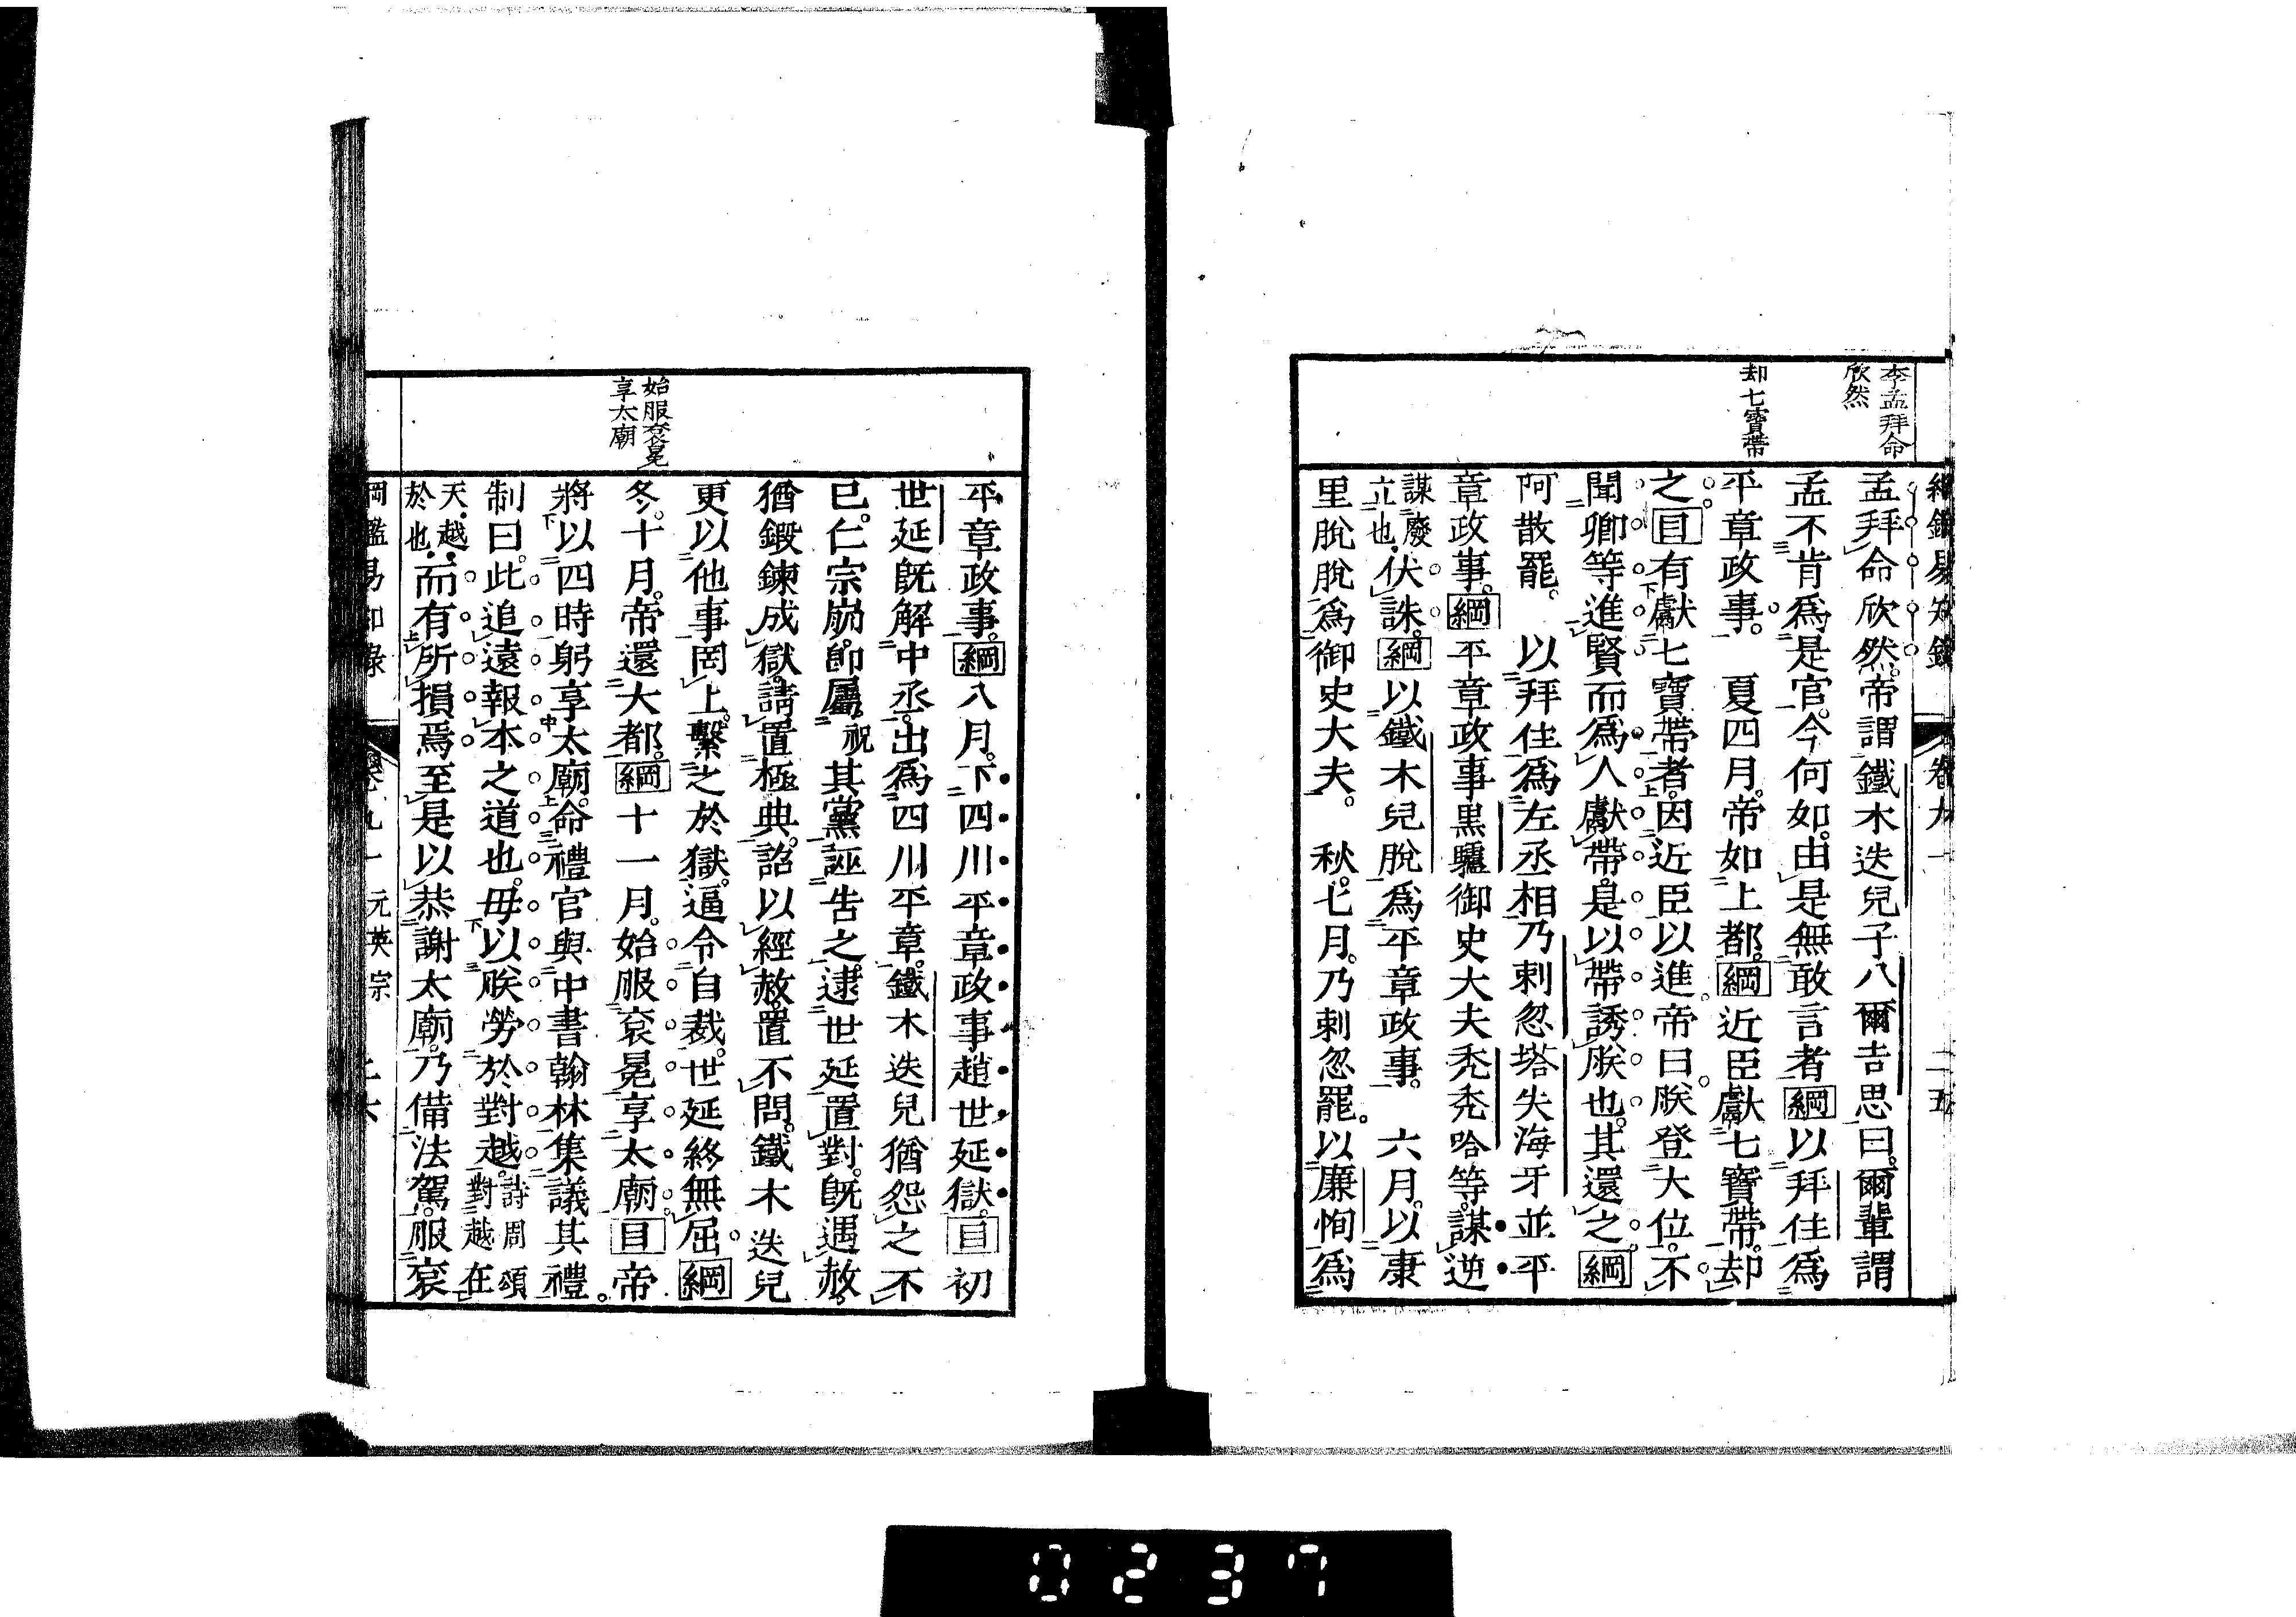 李孟拜命
欣然
却七寶帶
孟拜命欣然。帝謂鐵木迭兒子八爾吉思曰。爾輩謂
孟不肯爲是官。今何如。由是無敢言者綱以拜住爲
平章政事。　夏四月。帝如上都。綱近臣獻七寶帶。却
之。目有獻七寶帶者。因近臣以進。帝曰。朕登大位。不
聞卿等進賢而爲人獻帶。是以帶誘朕也。其還之。綱
阿散罷。　以拜住爲左丞相。乃剌忽塔失海牙並平
章政事。綱平章政事黑驢御史大夫禿禿哈等。謀逆
謀廢
立也。伏誅。綱以鐵木兒脫爲平章政事。　六月。以康
里脫脫爲御史大夫。　秋。七月。乃剌忽罷。以廉恂爲
始服袞冕
享太廟
平章政事。綱八月。下四川平章政事趙世延獄。目初
世延既解中丞。出爲四川平章。鐵木迭兒猶怨之不
已。仁宗崩。卽屬祝其黨誣告之。逮世延置對。既遇赦。
猶鍛鍊成獄。請置極典。詔以經赦。置不問。鐵木迭兒
更以他事罔上。繫之於獄。逼令自裁。世延終無屈。綱
冬。十月。帝還大都。綱十一月。始服袞冕享太廟。目帝
將以四時躬享太廟。命禮官與中書翰林集議其禮。
制曰。此追遠報本之道也。毋以朕勞於對越詩周頌
對越在
天。越。
於也。而有所損焉。至是以恭謝太廟。乃備法駕。服袞
元英宗
0237